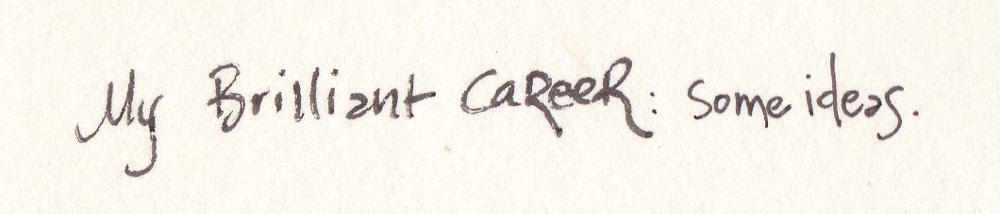 My Brilliant CaReeR: some ideas.